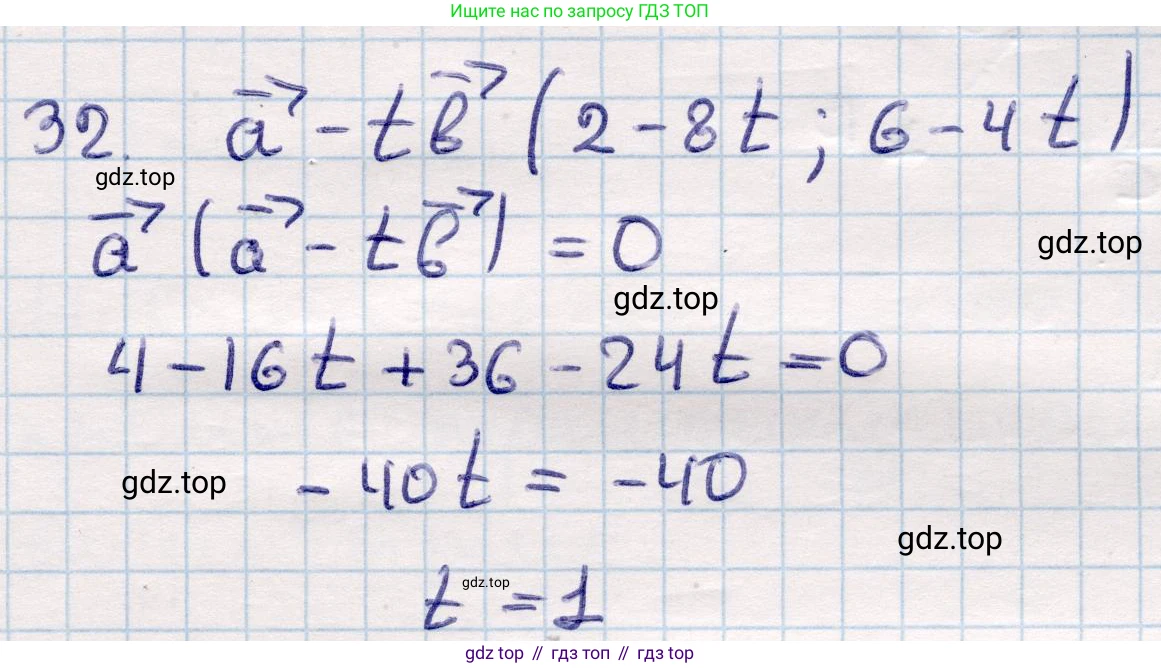 Ищите нас по запросу ГДЗ ТОП
32. a⃗ - t b⃗ (2 - 8t; 6 - 4t)
gdz.top
a⃗ (a⃗ - t b⃗) = 0
gdz.top
gdz.top
4 - 16t + 36 - 24t = 0
gdz.top
- 40t = -40
gdz.top
t = 1
gdz.top
gdz top // гдз топ // gdz top